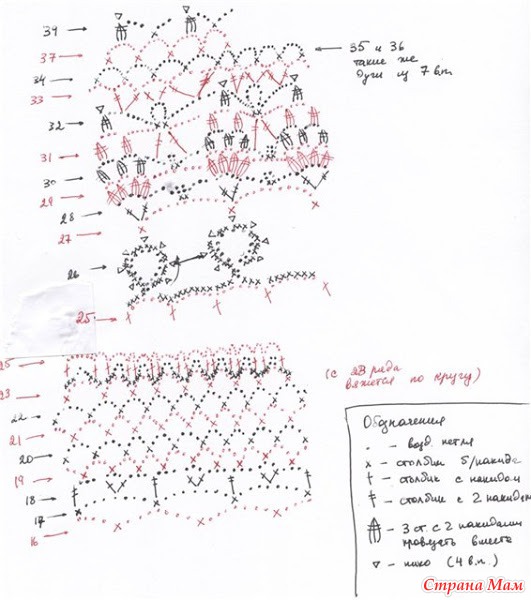 39
37
34
33
32
31
30
29
28
27
26
25
35 и 36
такие же
дуги из 7 в.п.
25
23
22
21
20
19
18
17
16
(с 23 ряда
вяжется по кругу)
Обозначения
. - возд. петля
x - столбик б/накида
† - столбик с накидом
‡ - столбик с 2 накидом
3 ст. с 2 накидами
провязать вместе
▽ - пико (4 в.п.)
Страна Мам